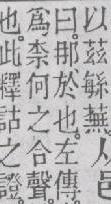 以茲繇無人邑
曰那於也左傳
爲柰何之合聲
也此釋詁之證